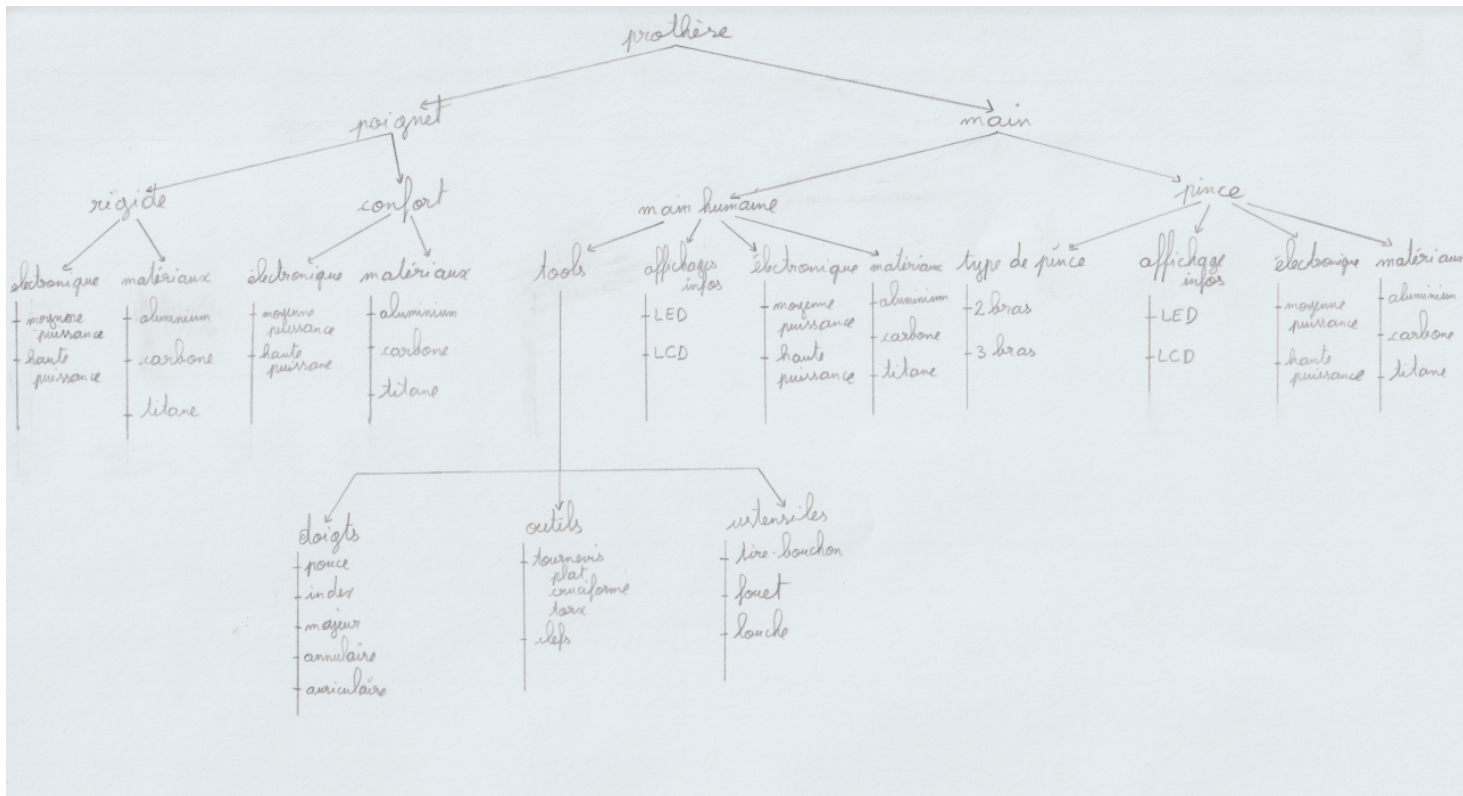 prothèse
poignet
main
rigide
confort
main humaine
pince
électronique
moyenne
puissance
haute
puissance
matériaux
aluminium
carbone
titane
électronique
moyenne
puissance
haute
puissane
matériaux
aluminium
carbone
titane
tools
affichages
infos
LED
LCD
électronique
moyenne
puissance
haute
puissance
matériaux
aluminium
carbone
titane
type de pince
2 bras
3 bras
affichage
infos
LED
LCD
électronique
moyenne
puissance
haute
puissance
matériaux
aluminium
carbone
titane
doigts
pouce
index
majeur
annulaire
auriculaire
outils
tournevis
plat
cruciforme
torx
clefs
ustensiles
tire-bouchon
fouet
louche